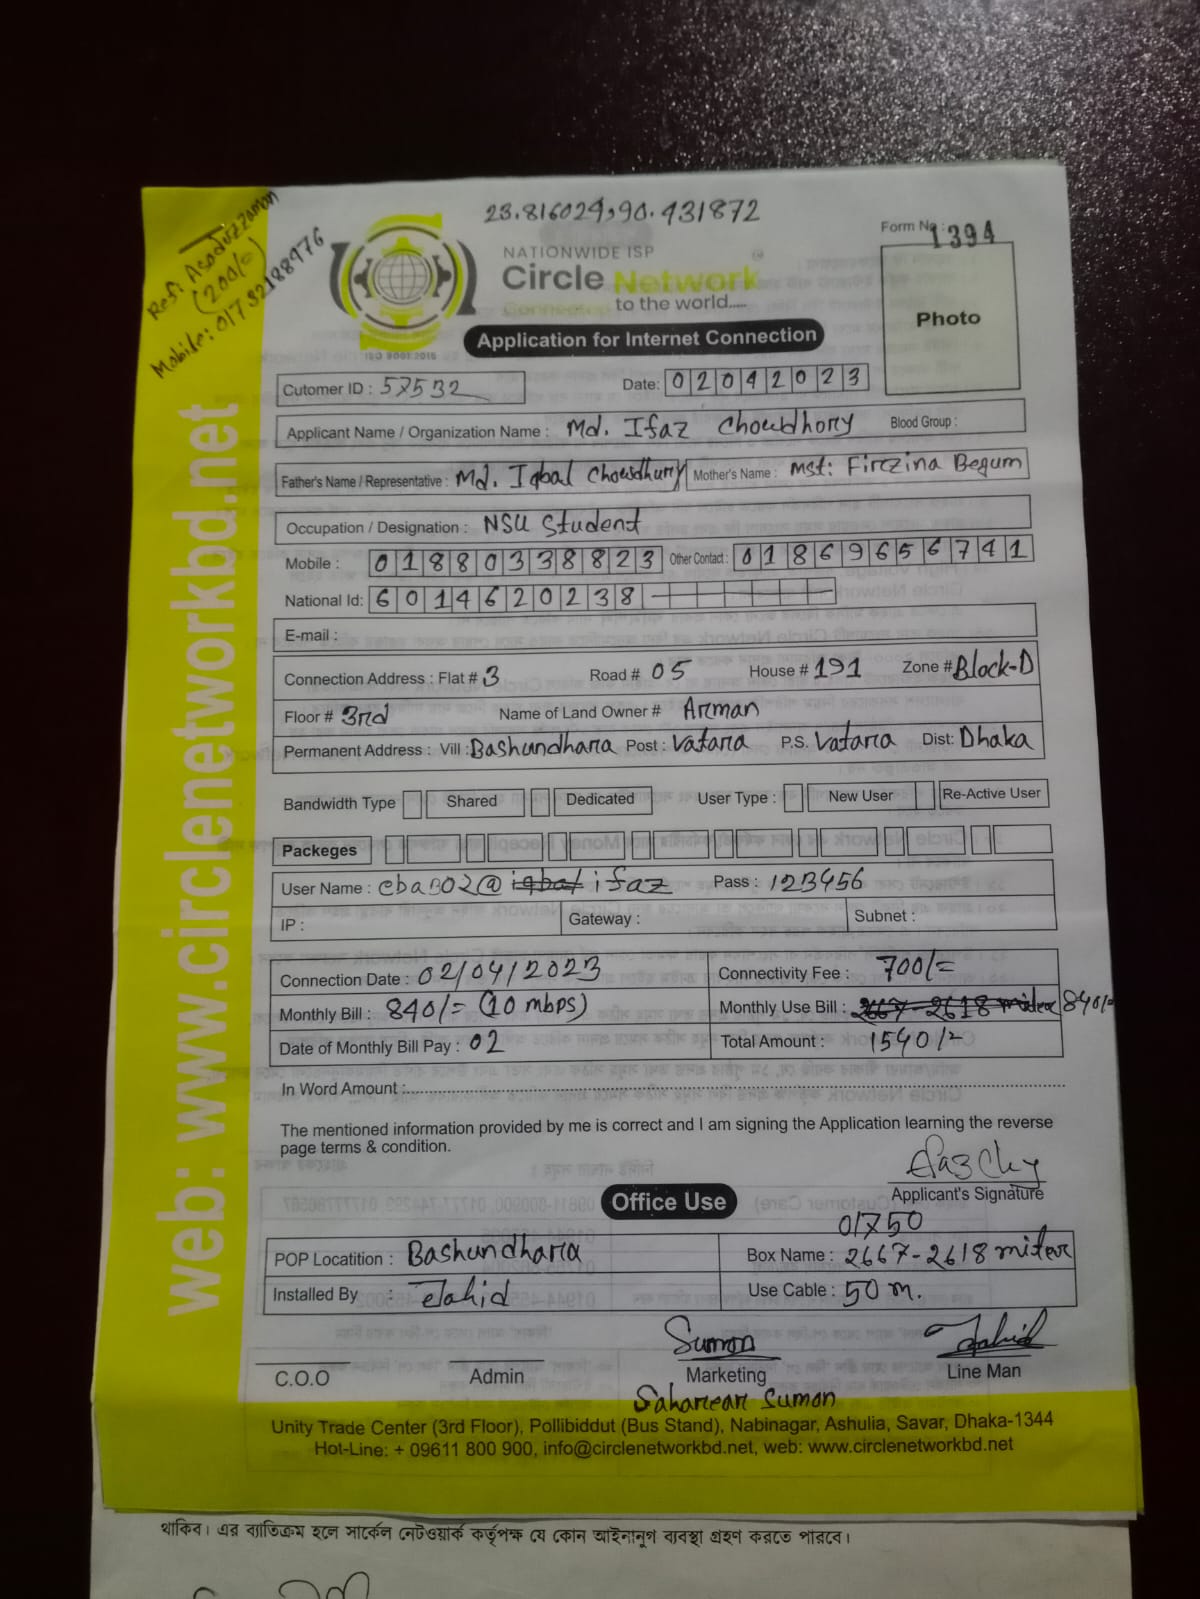 Ref: Asaduzzaman
(200/=)
Mobile: 01732188976
23.816029, 90.431872
Form No: 1394
NATIONWIDE ISP
Circle Network
Connected to the world.....
ISO 9001:2015
Application for Internet Connection
Photo
Cutomer ID : 57532 Date: 02042023
Applicant Name / Organization Name : Md. Ifaz Chowdhory Blood Group :
Father's Name / Representative : Md. Iqbal Chowdhury Mother's Name : Mst: Firczina Begum
Occupation / Designation : NSU Student
Mobile : 01880338823 Other Contact : 01869656741
National Id: 6014620238
E-mail :
Connection Address : Flat # 3 Road # 05 House # 191 Zone # Block-D
Floor # 3rd Name of Land Owner # Arman
Permanent Address : Vill : Bashundhara Post : Vatara P.S. Vatara Dist: Dhaka
Bandwidth Type Shared Dedicated User Type : New User Re-Active User
Packeges
User Name : cba302@ iqbal ifaz Pass : 123456
IP : Gateway : Subnet :
Connection Date : 02/04/2023 Connectivity Fee : 700/=
Monthly Bill : 840/= (10 mbps) Monthly Use Bill : 2667-2618 miter 840/=
Date of Monthly Bill Pay : 02 Total Amount : 1540/=
In Word Amount :
The mentioned information provided by me is correct and I am signing the Application learning the reverse
page terms & condition.
Applicant's Signature
Office Use
01750
POP Locatition : Bashundhara Box Name : 2667-2618 miter
Installed By : Jahid Use Cable : 50 m.
Sumon Jahid
C.O.O Admin Marketing Line Man
Saharear Sumon
Unity Trade Center (3rd Floor), Pollibiddut (Bus Stand), Nabinagar, Ashulia, Savar, Dhaka-1344
Hot-Line: + 09611 800 900, info@circlenetworkbd.net, web: www.circlenetworkbd.net
web: www.circlenetworkbd.net
থাকিব। এর ব্যাতিক্রম হলে সার্কেল নেটওয়ার্ক কর্তৃপক্ষ যে কোন আইনানুগ ব্যবস্থা গ্রহণ করতে পারবে।